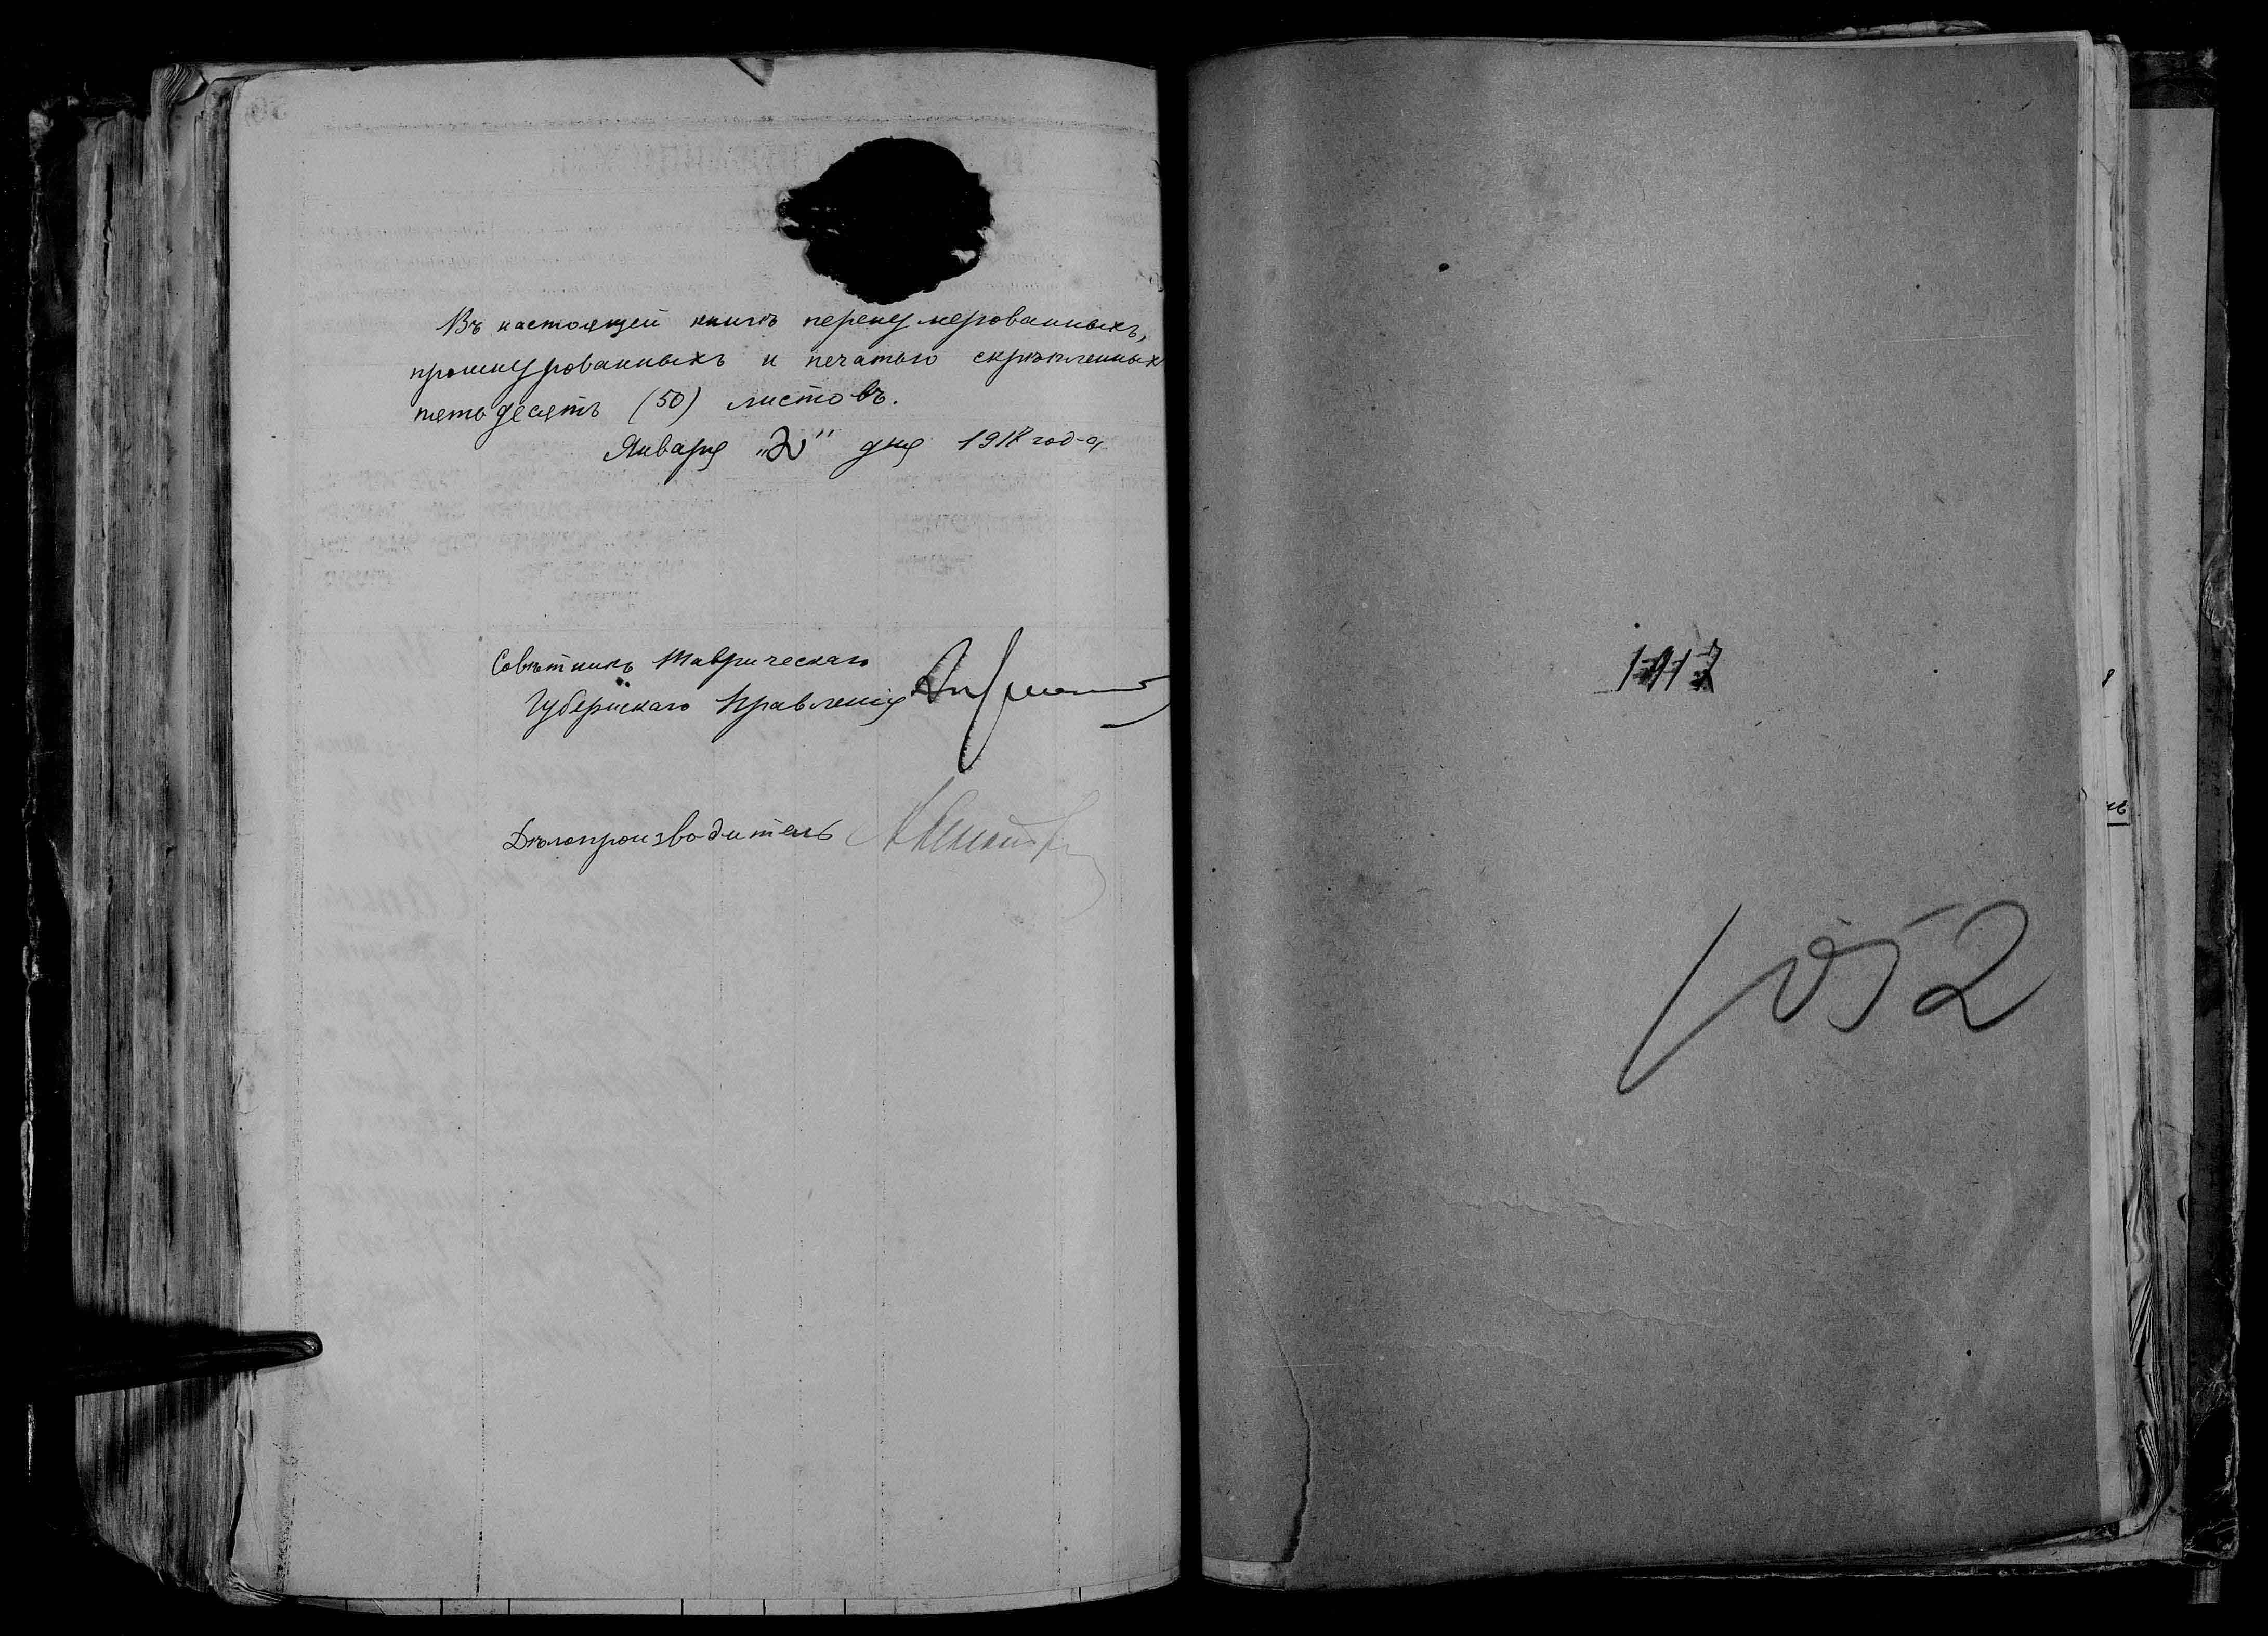 Въ настоящей книгѣ перенумерованныхъ,
прошнурованныхъ и печатью скрѣпленныхъ
пятьдесятъ (50) листовъ.
Января „2" дня 1917 года
Совѣтникъ Таврическаго
Губернскаго Правленія
Дѣлопроизводитель
1917
1052